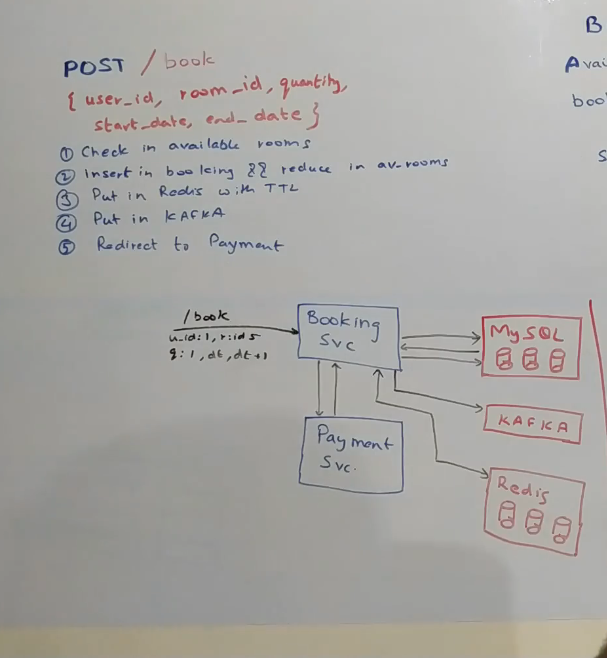 POST /book
{ user_id, room_id, quantity,
start_date, end_date }
① Check in available rooms
② Insert in booking && reduce in av-rooms
③ Put in Redis with TTL
④ Put in KAFKA
⑤ Redirect to Payment
B
Avai
boo
S
/book
u_id:1, r:id5
q:1, dt, dt+1
Booking
Svc
MySQL
KAFKA
Payment
Svc.
Redis